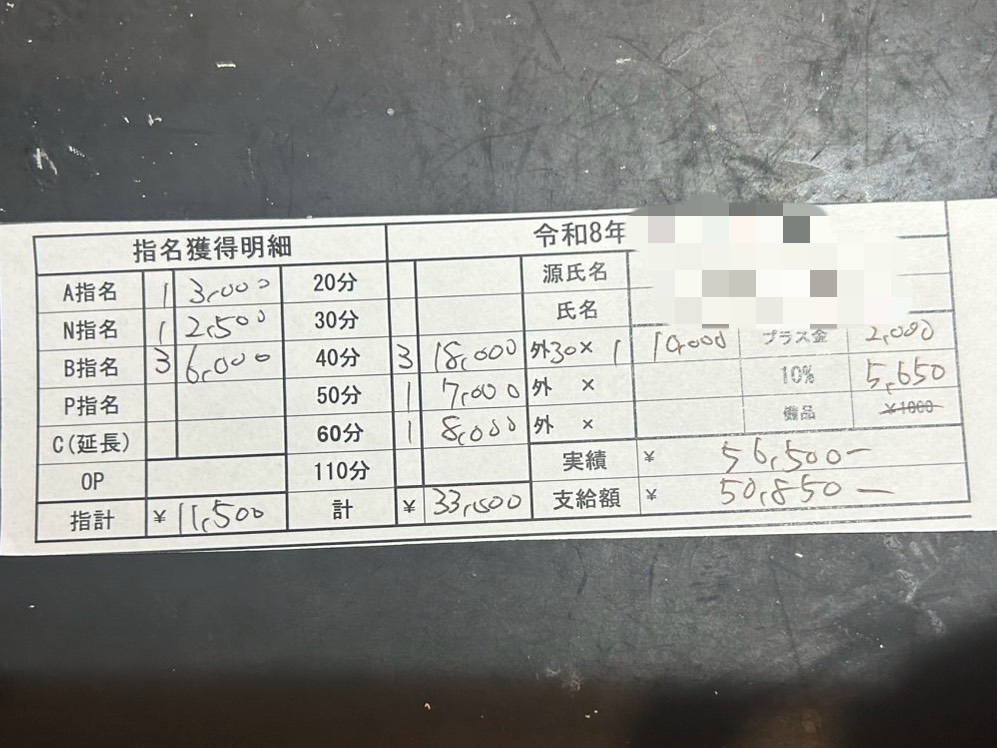 指名獲得明細 令和8年
A指名 1 3,000 20分 源氏名
N指名 1 2,500 30分 氏名
B指名 3 6,000 40分 3 18,000 外30× 1 10,000 プラス金 2,000
P指名 50分 1 7,000 外 × 10% 5,650
C(延長) 60分 1 8,000 外 × 備品 ¥1000
OP 110分 実績 ¥ 56,500-
指計 ¥ 11,500 計 ¥ 33,000 支給額 ¥ 50,850-